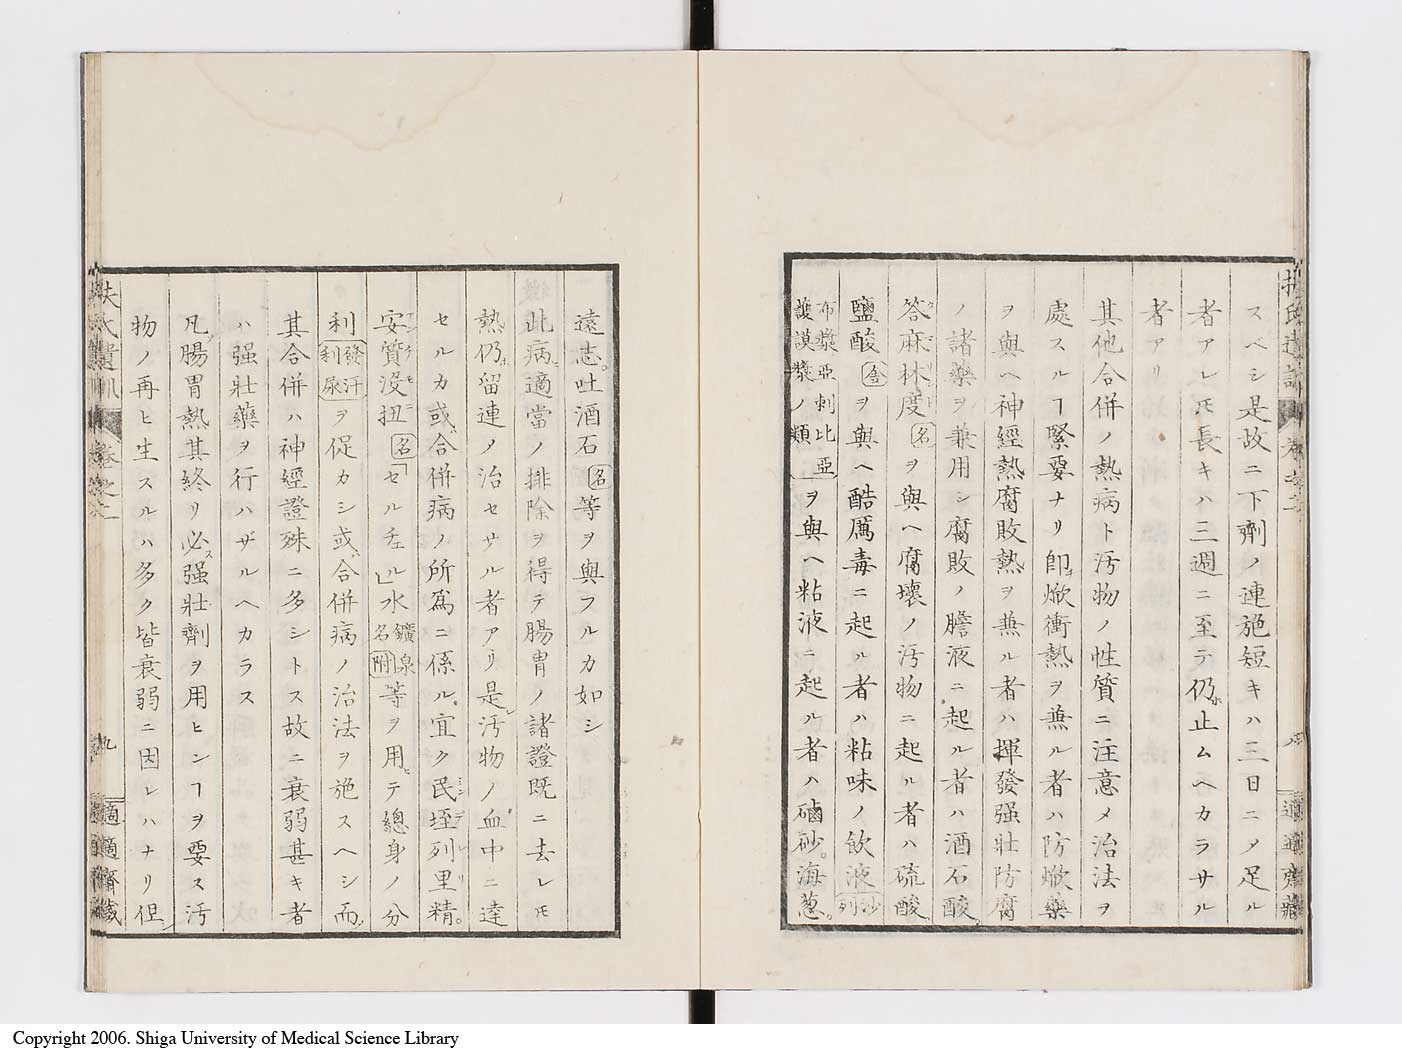 スベシ是故ニ下劑ノ連施短キハ三日ニ〆足ル
者アレ𪜈長キハ三週ニ至テ仍ホ止ムベカラサル
者アリ
其他合併ノ熱病ト汚物ノ性質ニ注意メ治法ヲ
處スルヿ緊要ナリ卽チ焮衝熱ヲ兼ル者ハ防焮藥
ヲ與ヘ神經熱腐敗熱ヲ兼ル者ハ揮發强壯防腐
ノ諸藥ヲ兼用シ腐敗ノ膽液ニ起ル者ハ酒石酸
答麻林度名ヲ與ヘ腐壞ノ汚物ニ起ル者ハ硫酸
鹽酸舎ヲ與ヘ酷厲毒ニ起ル者ハ粘味ノ飮液沙列
布漿亞刺比亞護謨漿ノ類ヲ與ヘ粘液ニ起ル者ハ磠砂海葱
遠志吐酒石名等ヲ與フルカ如シ
此病適當ノ排除ヲ得テ腸胃ノ諸證既ニ去レ𪜈
熱仍ホ留連ノ治セサル者アリ是レ汚物ノ血中ニ達
セルカ或ハ合併病ノ所爲ニ係ル宜ク民垤列里精
安質没扭名「セルチェル」水鑛泉名附等ヲ用ヒテ總身ノ分
利發汗利尿ヲ促カシ或ハ合併病ノ治法ヲ施スヘシ而
其合併ハ神經證殊ニ多シトス故ニ衰弱甚キ者
ハ强壯藥ヲ行ハザルヘカラス
凡ソ腸胃熱其終リ必ス强壯劑ヲ用ヒンヿヲ要ス汚
物ノ再ヒ生スルハ多ク皆衰弱ニ因レハナリ但シ
扶氏遺訓 卷之二
九
適適齋藏
Copyright 2006. Shiga University of Medical Science Library